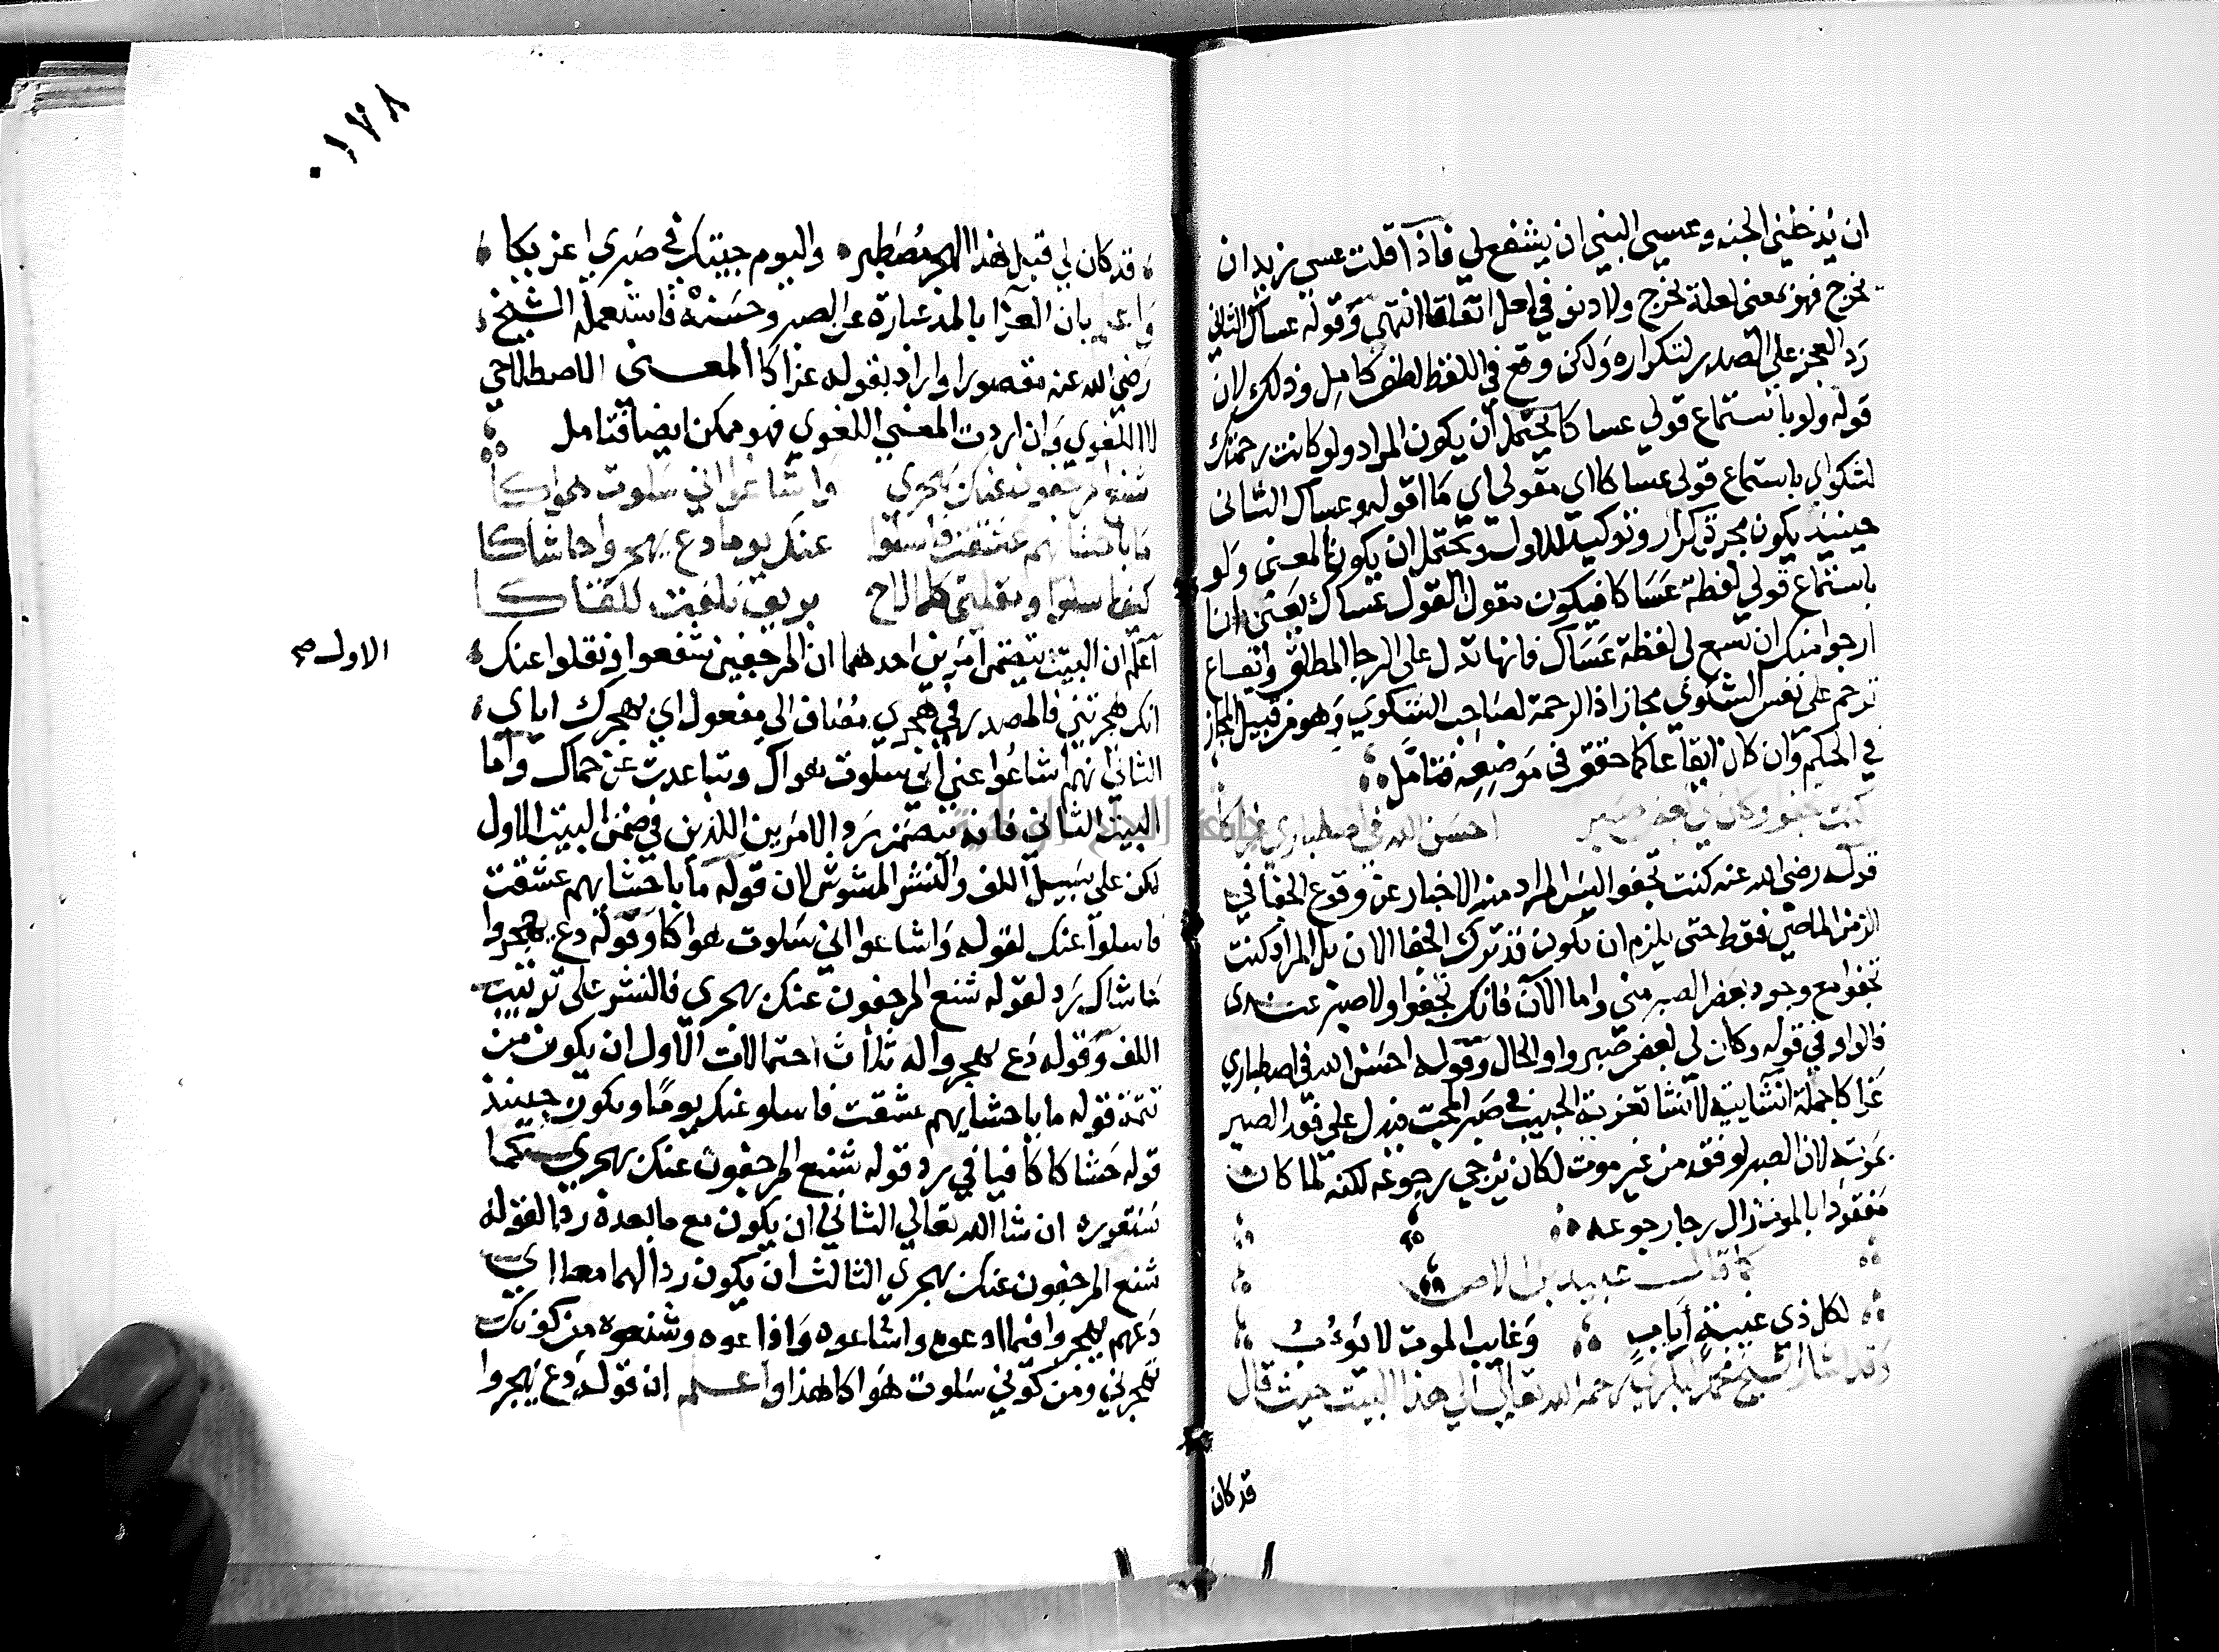 ان يدخلني الجنه وعسى النبي ان يشفع لي فاذا قلت عسى زيد ان
يخرج فهو بمعنى لعله يخرج ولا دنو في لعل اتفاقا انتهى وقوله عساك الثاني
رد العجز على الصدر لتكراره ولكن وقع في اللفظ لطف كامل وذلك لان
قوله ولو باستماع قولي عساكا يحتمل ان يكون المراد ولو كانت رحمتك
لشكواي باستماع قولي عساكا اي مقولي اي ما اقوله وعساك الثاني
حينيذ يكون مجرد تكرار وتوكيد للاول ويحتمل ان يكون المعنى ولو
باستماع قولي لفظة عساكا فيكون مقول القول عساك يعني انا
ارجوا منك ان تسمع لي لفظة عساك فانها تدل على الرجا المطلق وايقاع
ترحم على نفس الشكوي مجاز اذ الرحمة لصاحب الشكوي وهو من قبيل المجاز
في الحكم وان كان ايقاعا كما حقق في موضعه فتامل
كنت تجفو وكان لي بعض صبر احسن الله في اصطباري عزاكا
قوله رضي الله عنه كنت تجفوا ليس المراد منه الاخبار عن وقوع الجفا في
الزمن الماضي فقط حتى يلزم ان يكون قد ترك الجفا الان بل المراد كنت
تجفوا مع وجود بعض الصبر مني واما الآن فانك تجفوا ولا صبر عندي
فالواو في قوله وكان لي بعض صبر واو الحال وقوله احسن الله في اصطباري
عزاكا جملة انشاييه لانشا تعزية الحبيب في صبر المحب فيدل على فقد الصبر
بموته لان الصبر لو فقد من غير موت لكان يترجي رجوعه لكنه لما كان
مفقودا بالموت زال رجا رجوعه
كما قال عبيد بن الابرص
لكل ذي غيبة اياب وغايب الموت لا يؤب
وقد اشار الشيخ محمد البكري رحمه الله تعالى الى هذا البيت حيث قال
قد كان
٠١٧٨
قد كان لي قبل هذا الهجر مصطبر واليوم جيتك في صبري اعزيكا
واعلم بان العزا بالمد عبارة عن الصبر وحسنه فاستعمله الشيخ
رضي الله عنه مقصورا واراد بقوله عزاكا المعنى الاصطلاحي
لا اللغوي وان اردت المعنى اللغوي فهو ممكن ايضا فتامل
شنع المرجفون عنك بهجري واشاعوا اني سلوت هواكا
ما باحشايهم عشقت فاسلوا عنك يوما دع يهجروا حاشاكا
كيف اسلوا ومقلتي كلما لاح بريق تلفتت للقاكا
اعلم ان البيت يتضمن امرين احدهما ان المرجفين شنعوا ونقلوا عنك
الاول صح
انك هجرتني فالمصدر في هجري مضاف الى مفعول اي بهجرك اياي
الثاني انهم اشاعوا عني اني سلوت هواك وتباعدت عن حماك واما
البيت الثاني فانه يتضمن رد الامرين اللذين في ضمن البيت الاول
لكن على سبيل اللف والنشر المشوش لان قوله ما باحشايهم عشقت
فاسلوا عنك لقوله واشاعوا اني سلوت هواكا وقوله دع يهجروا
حاشاك رد لقوله شنع المرجفون عنك بهجري فالنشر على ترتيب
اللف وقوله دع يهجروا له ثلاث احتمالات الاول ان يكون من
تتمة قوله ما باحشايهم عشقت فاسلو عنك يوما ويكون حينيذ
قوله حشاكا كافيا في رد قوله شنع المرجفون عنك بهجري كما
سنقرره ان شا الله تعالى الثاني ان يكون مع ما بعده ردا لقوله
شنع المرجفون عنك بهجري الثالث ان يكون ردا لهما معا اي
دعهم يهجروا فيما ادعوه واشاعوه واذاعوه وشنعوه من كونك
تهجرني ومن كوني سلوت هواكا هذا واعلم ان قوله دع يهجروا